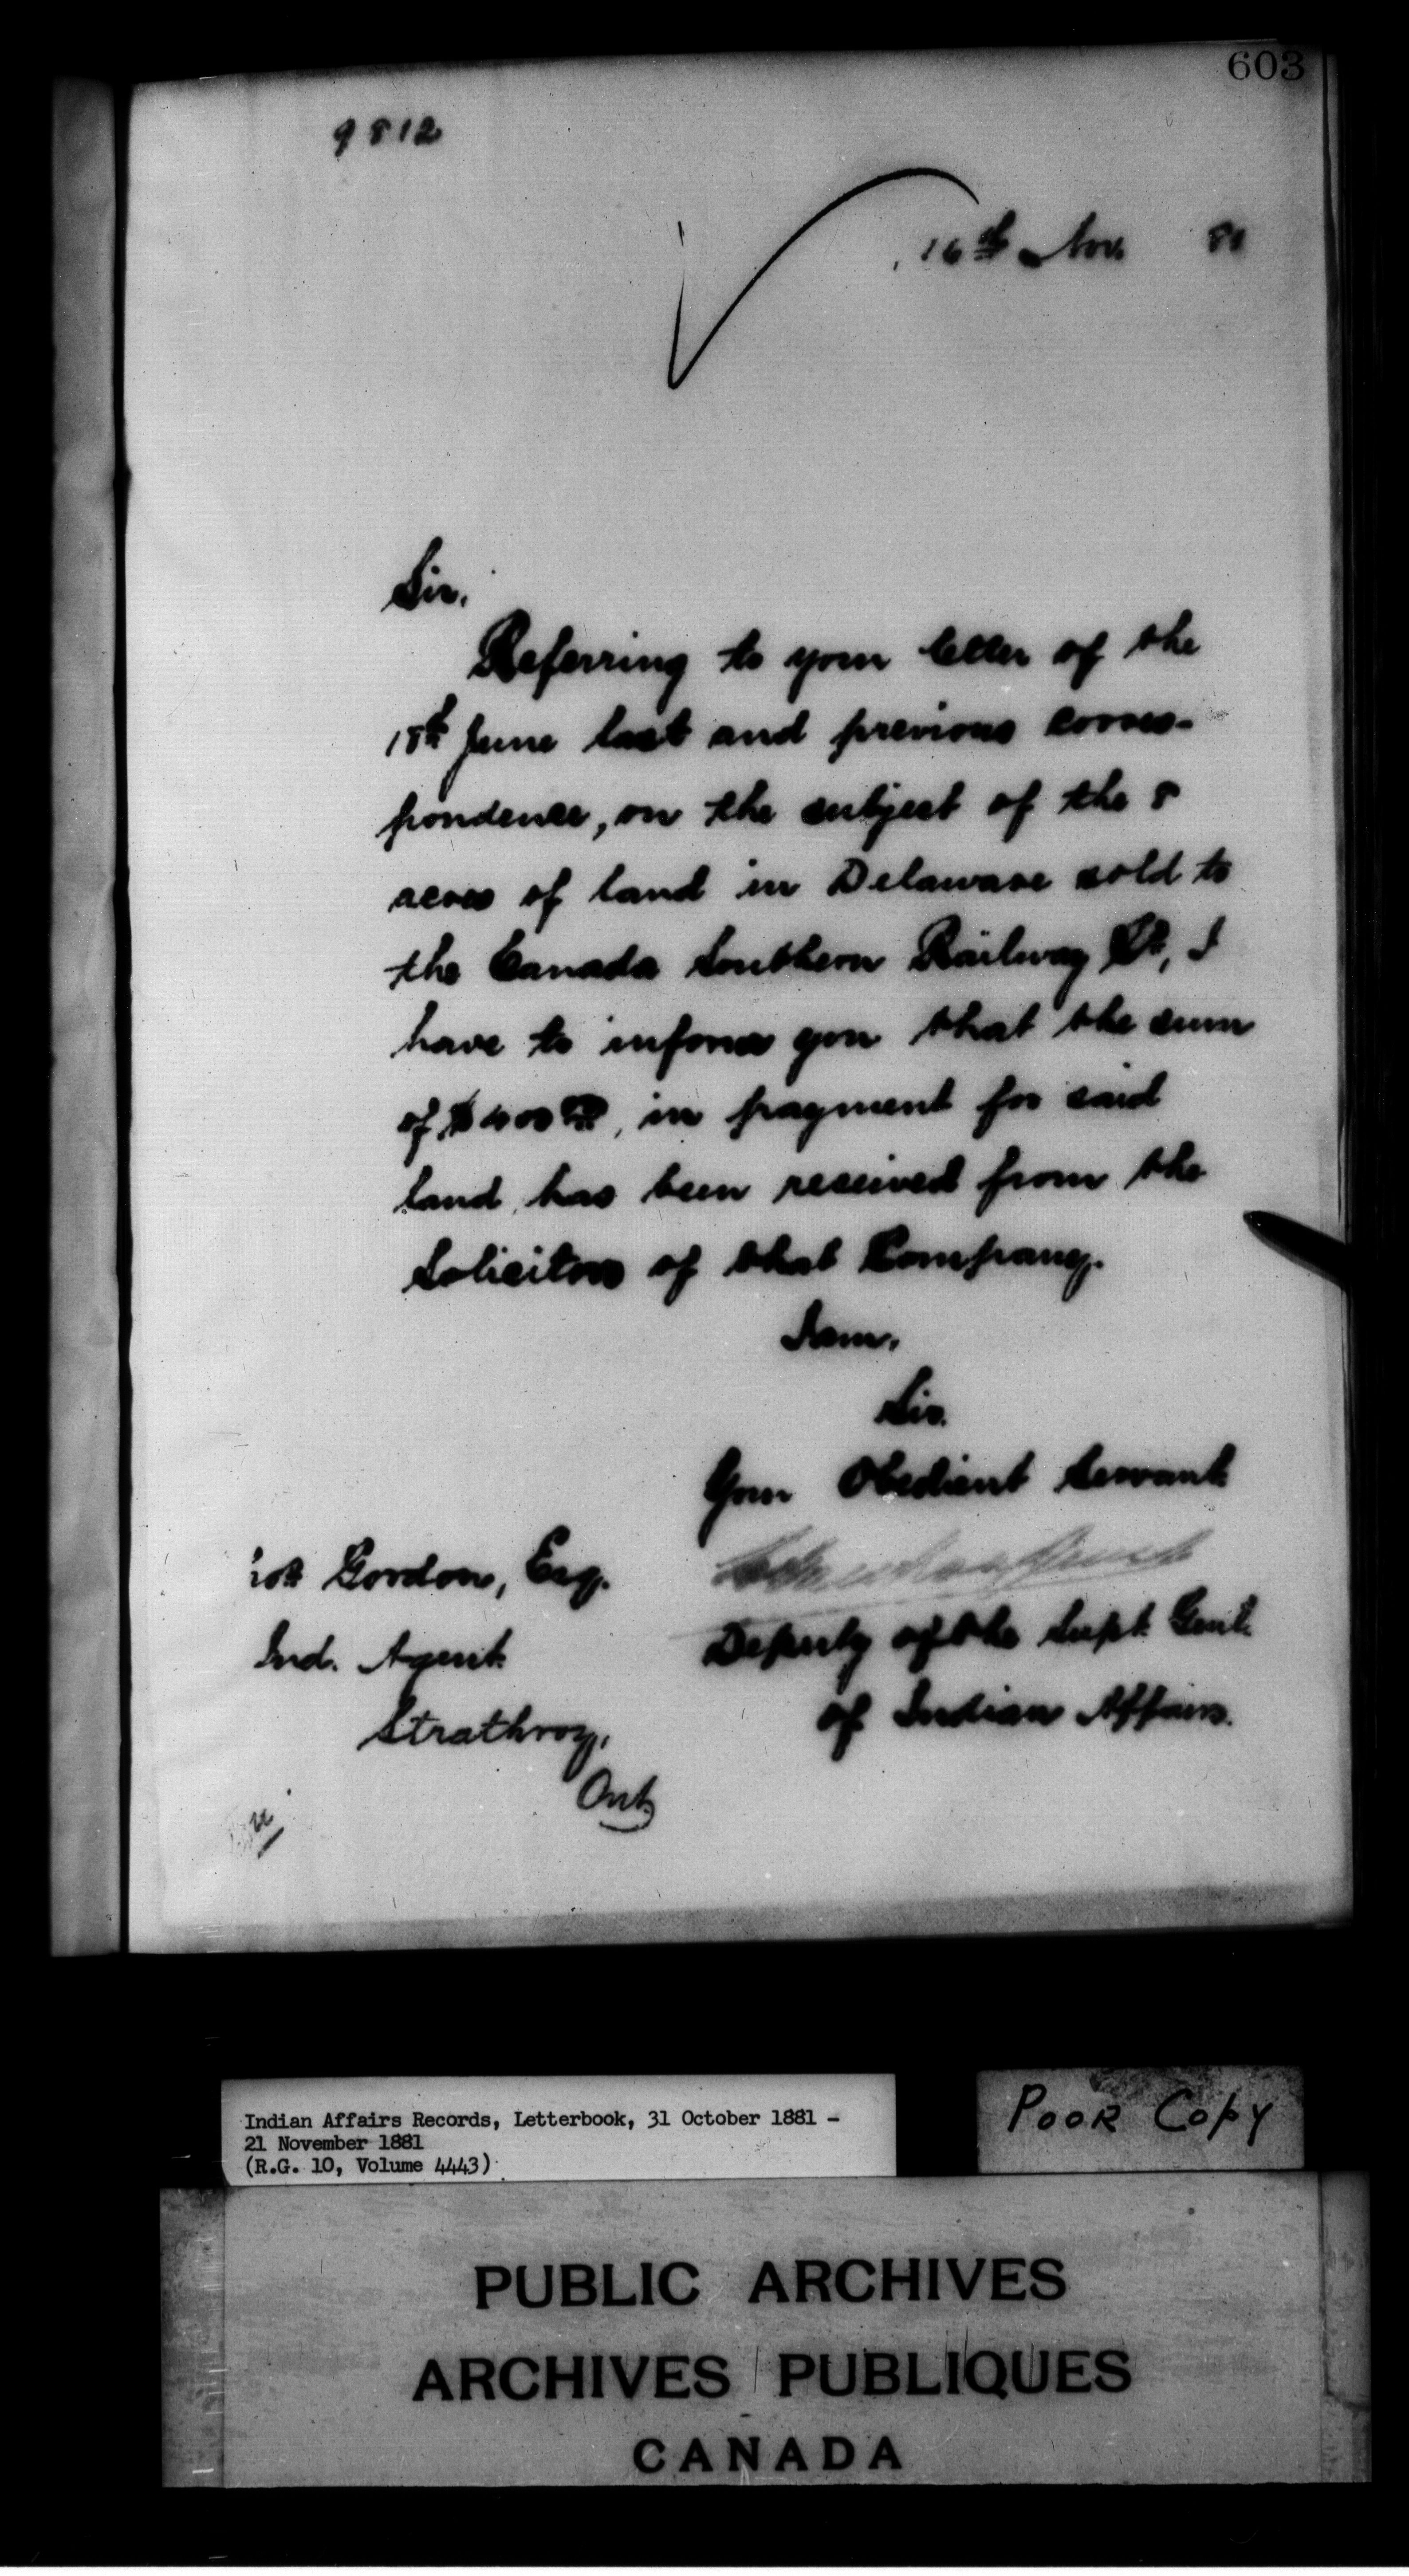 603
9812
16th Nov. 81
Sir,
Referring to your letter of the
18th June last and previous corres-
pondence, on the subject of the 8
acres of land in Delaware sold to
the Canada Southern Railway Co, I
have to inform you that the sum
of $400 00, in payment for said
land, has been received from the
Solicitors of that Company.
I am,
Sir.
Your Obedient Servant
Gordon, Esq.
Deputy of the Supt. Genl.
Ind. Agent.
of Indian Affairs.
Strathroy,
Ont
Indian Affairs Records, Letterbook, 31 October 1881 -
21 November 1881
(R.G. 10, Volume 4443)
POOR COPY
PUBLIC ARCHIVES
ARCHIVES PUBLIQUES
CANADA